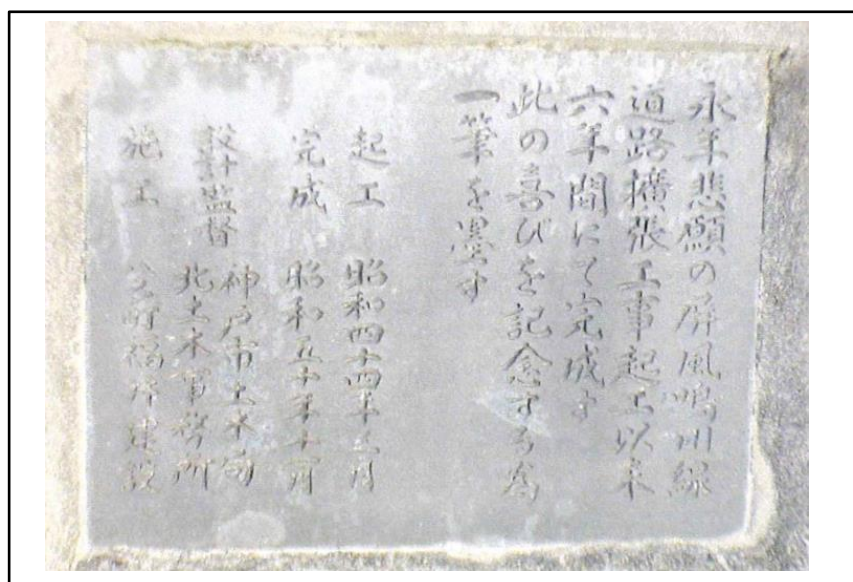 永年悲願の屏風鳴川線
道路擴張工事起工以来
六年間にて完成す
此の喜びを記念する為
一筆を墨す
起工 昭和四十四年三月
完成 昭和五十年十一月
設計監督 神戸市土木局
北土木事務所
施工 福井建設